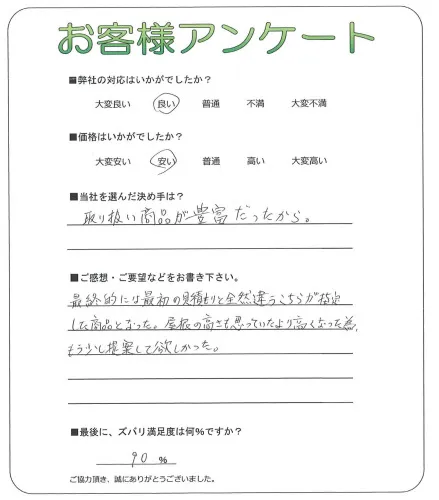 お客様アンケート
■弊社の対応はいかがでしたか？
大変良い 良い 普通 不満 大変不満
■価格はいかがでしたか？
大変安い 安い 普通 高い 大変高い
■当社を選んだ決め手は？
取り扱い商品が豊富だったから。
■ご感想・ご要望などをお書き下さい。
最終的には最初の見積もりと全然違うこちらが指定
した商品となった。屋根の高さも思っていたより高くなった為、
もう少し提案して欲しかった。
■最後に、ズバリ満足度は何％ですか？
90 %
ご協力頂き、誠にありがとうございました。